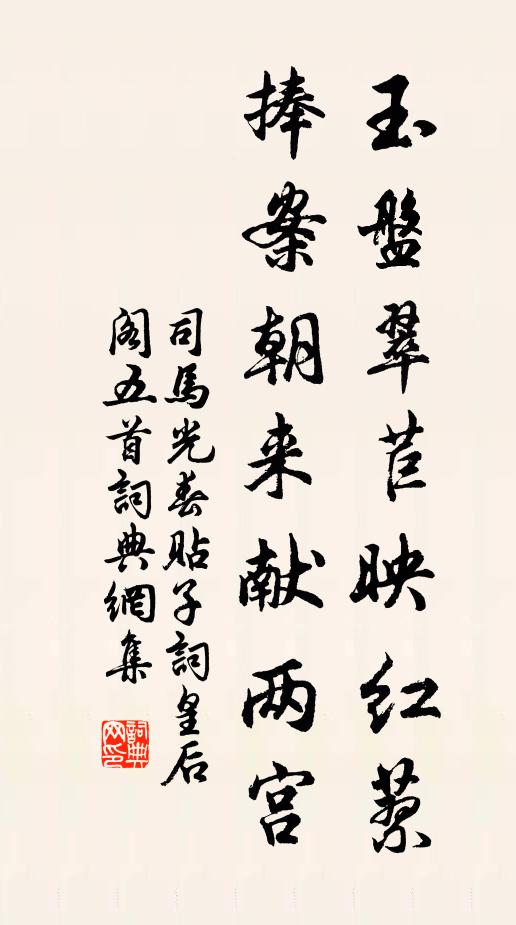 玉盤翠苣映红
捧案朝来献两宫
司馬光春貼子詞皇后
閣五首詞典網集
詞典
网印